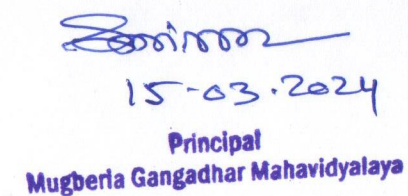 15-03.2024
Principal
Mugberia Gangadhar Mahavidyalaya